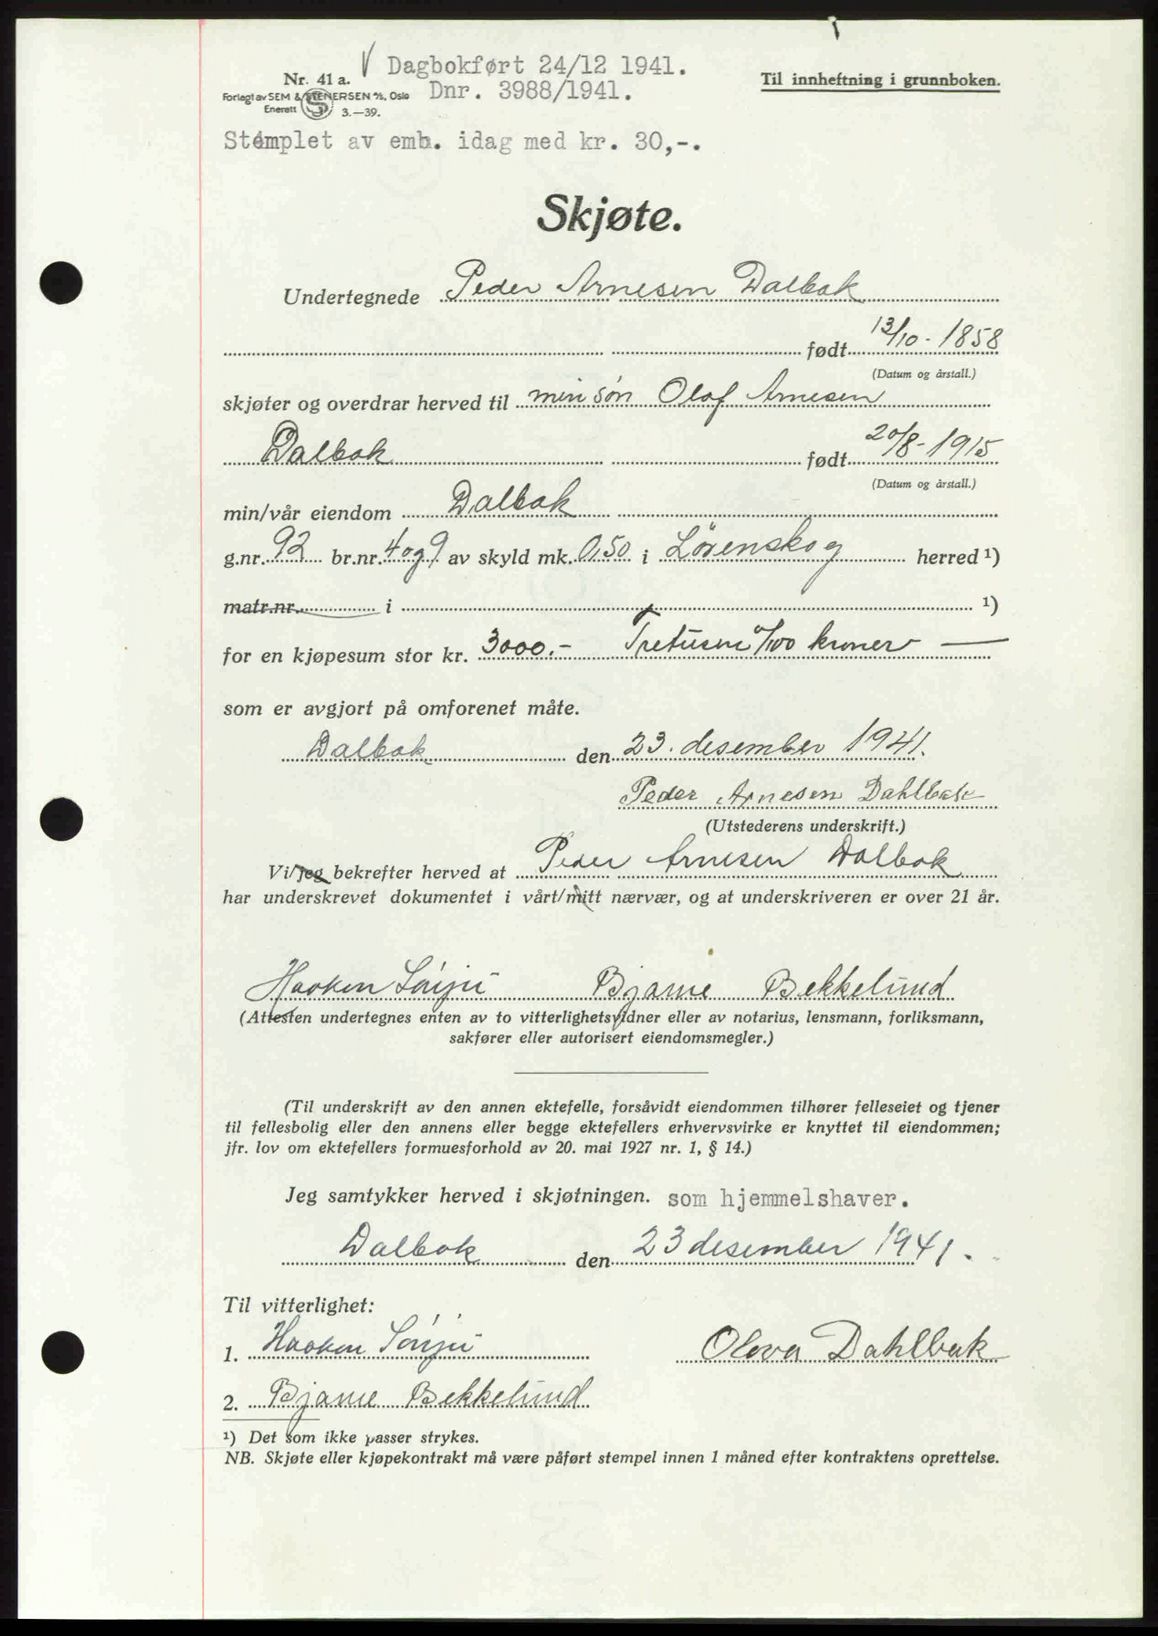 Nr. 41 a.
Dagbokført 24/12 1941.
Til innheftning i grunnboken.
Forlagt av SEM & STENERSEN A/S, Oslo
Dnr. 3988/1941.
Enerett S 3.—39.
Stemplet av emb. idag med kr. 30,-.
Skjøte.
Undertegnede Peder Arnesen Dalbak
født 13/10 - 1858
(Datum og årstall.)
skjøter og overdrar herved til min søn Olaf Arnesen
Dalbak født 20/8 - 1915
(Datum og årstall.)
min/vår eiendom Dalbak
g.nr. 92 br.nr. 4 og 9 av skyld mk. 0,50 i Lørenskog herred ¹)
matr.nr. i ¹)
for en kjøpesum stor kr. 3000.- Tretusen 0/100 kroner —
som er avgjort på omforenet måte.
Dalbak den 23. desember 1941.
Peder Arnesen Dahlbak
(Utstederens underskrift.)
Vi/jeg bekrefter herved at Peder Arnesen Dalbak
har underskrevet dokumentet i vårt/mitt nærvær, og at underskriveren er over 21 år.
Haaken Bjarne Bekkelund
(Attesten undertegnes enten av to vitterlighetsvidner eller av notarius, lensmann, forliksmann,
sakfører eller autorisert eiendomsmegler.)
(Til underskrift av den annen ektefelle, forsåvidt eiendommen tilhører felleseiet og tjener
til fellesbolig eller den annens eller begge ektefellers erhvervsvirke er knyttet til eiendommen;
jfr. lov om ektefellers formuesforhold av 20. mai 1927 nr. 1, § 14.)
Jeg samtykker herved i skjøtningen. som hjemmelshaver.
Dalbak den 23 desember 1941.
Til vitterlighet:
1. Haaken
Olova Dahlbak
2. Bjarne Bekkelund
¹) Det som ikke passer strykes.
NB. Skjøte eller kjøpekontrakt må være påført stempel innen 1 måned efter kontraktens oprettelse.